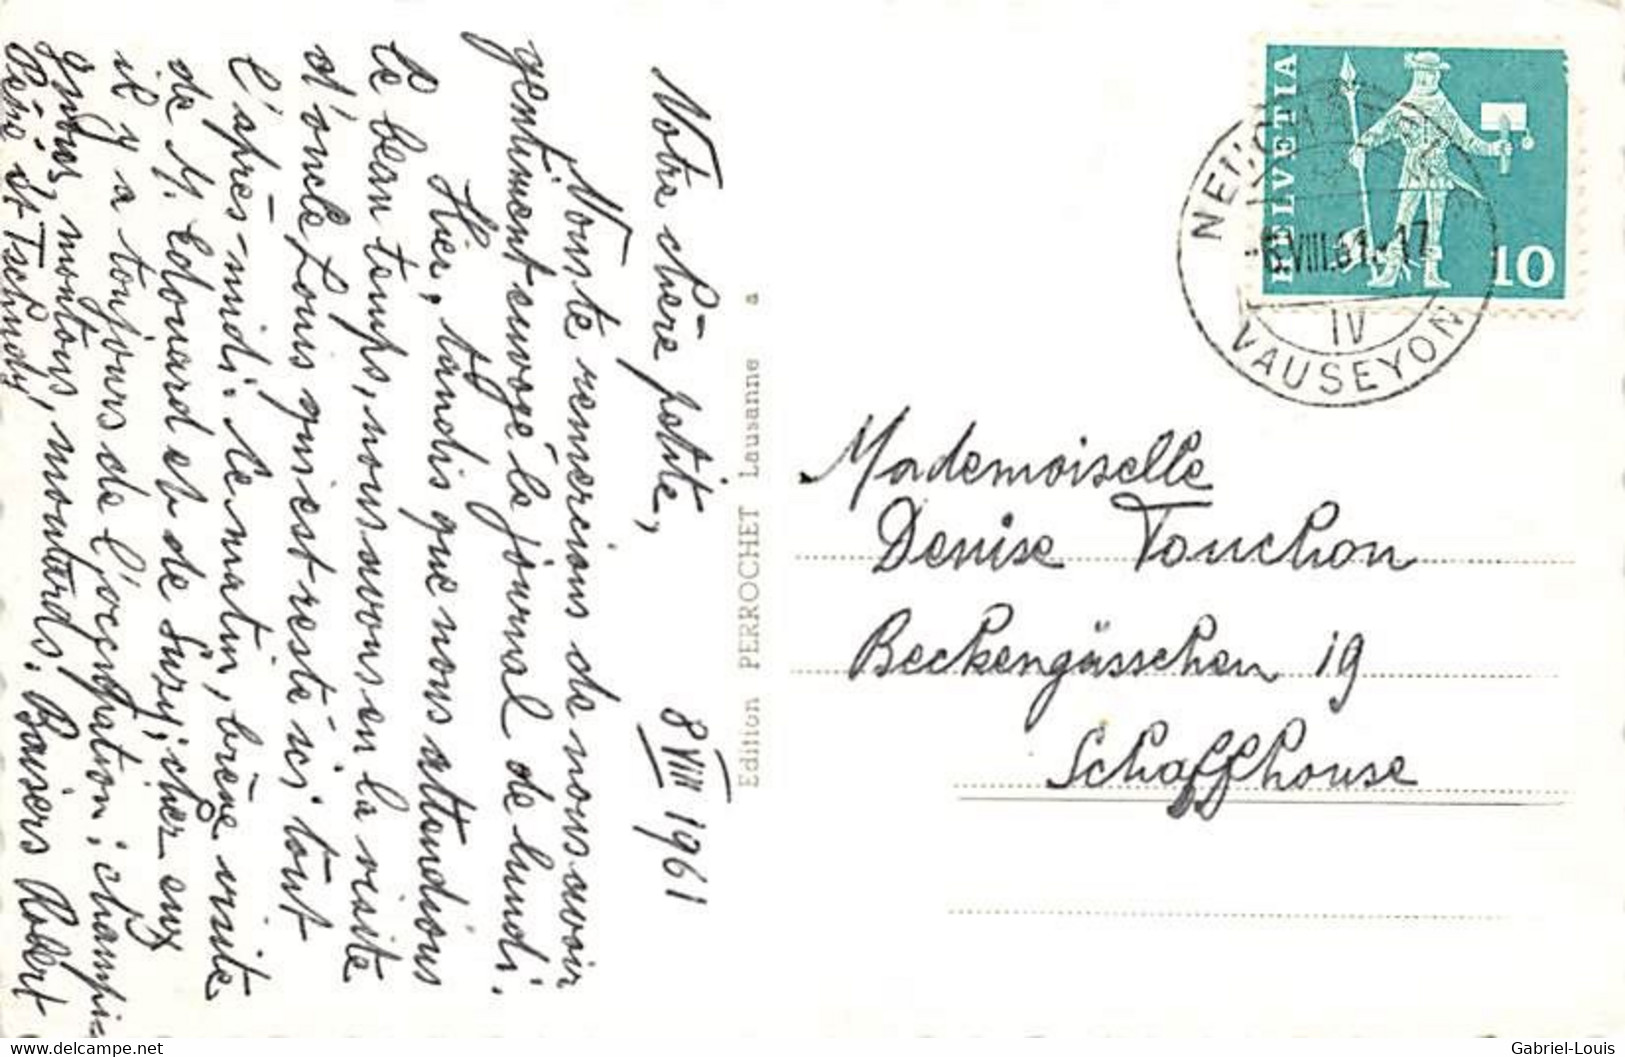 Votre chère petite,
8 VIII 1961
Nous te remercions de nous avoir
gentiment envoyé le journal de lundi.
Hier, tandis que nous attendions
le beau temps, nous avons eu la visite
d'oncle Louis qui est resté ici tout
l'après-midi. Ce matin, brève visite
de M. Edouard et de Suzy; chez eux
il y a toujours de l'occupation; champi-
gnons, moutons, moutards. Baisers Robert
Edition PERROCHET Lausanne a
HELVETIA
10
NEUCHA
VIII.61.-17
IV
VAUSEYON
Mademoiselle
Denise Touchon
Beckengässchen 19
Schaffhouse
delcampe.net
Gabriel-Louis